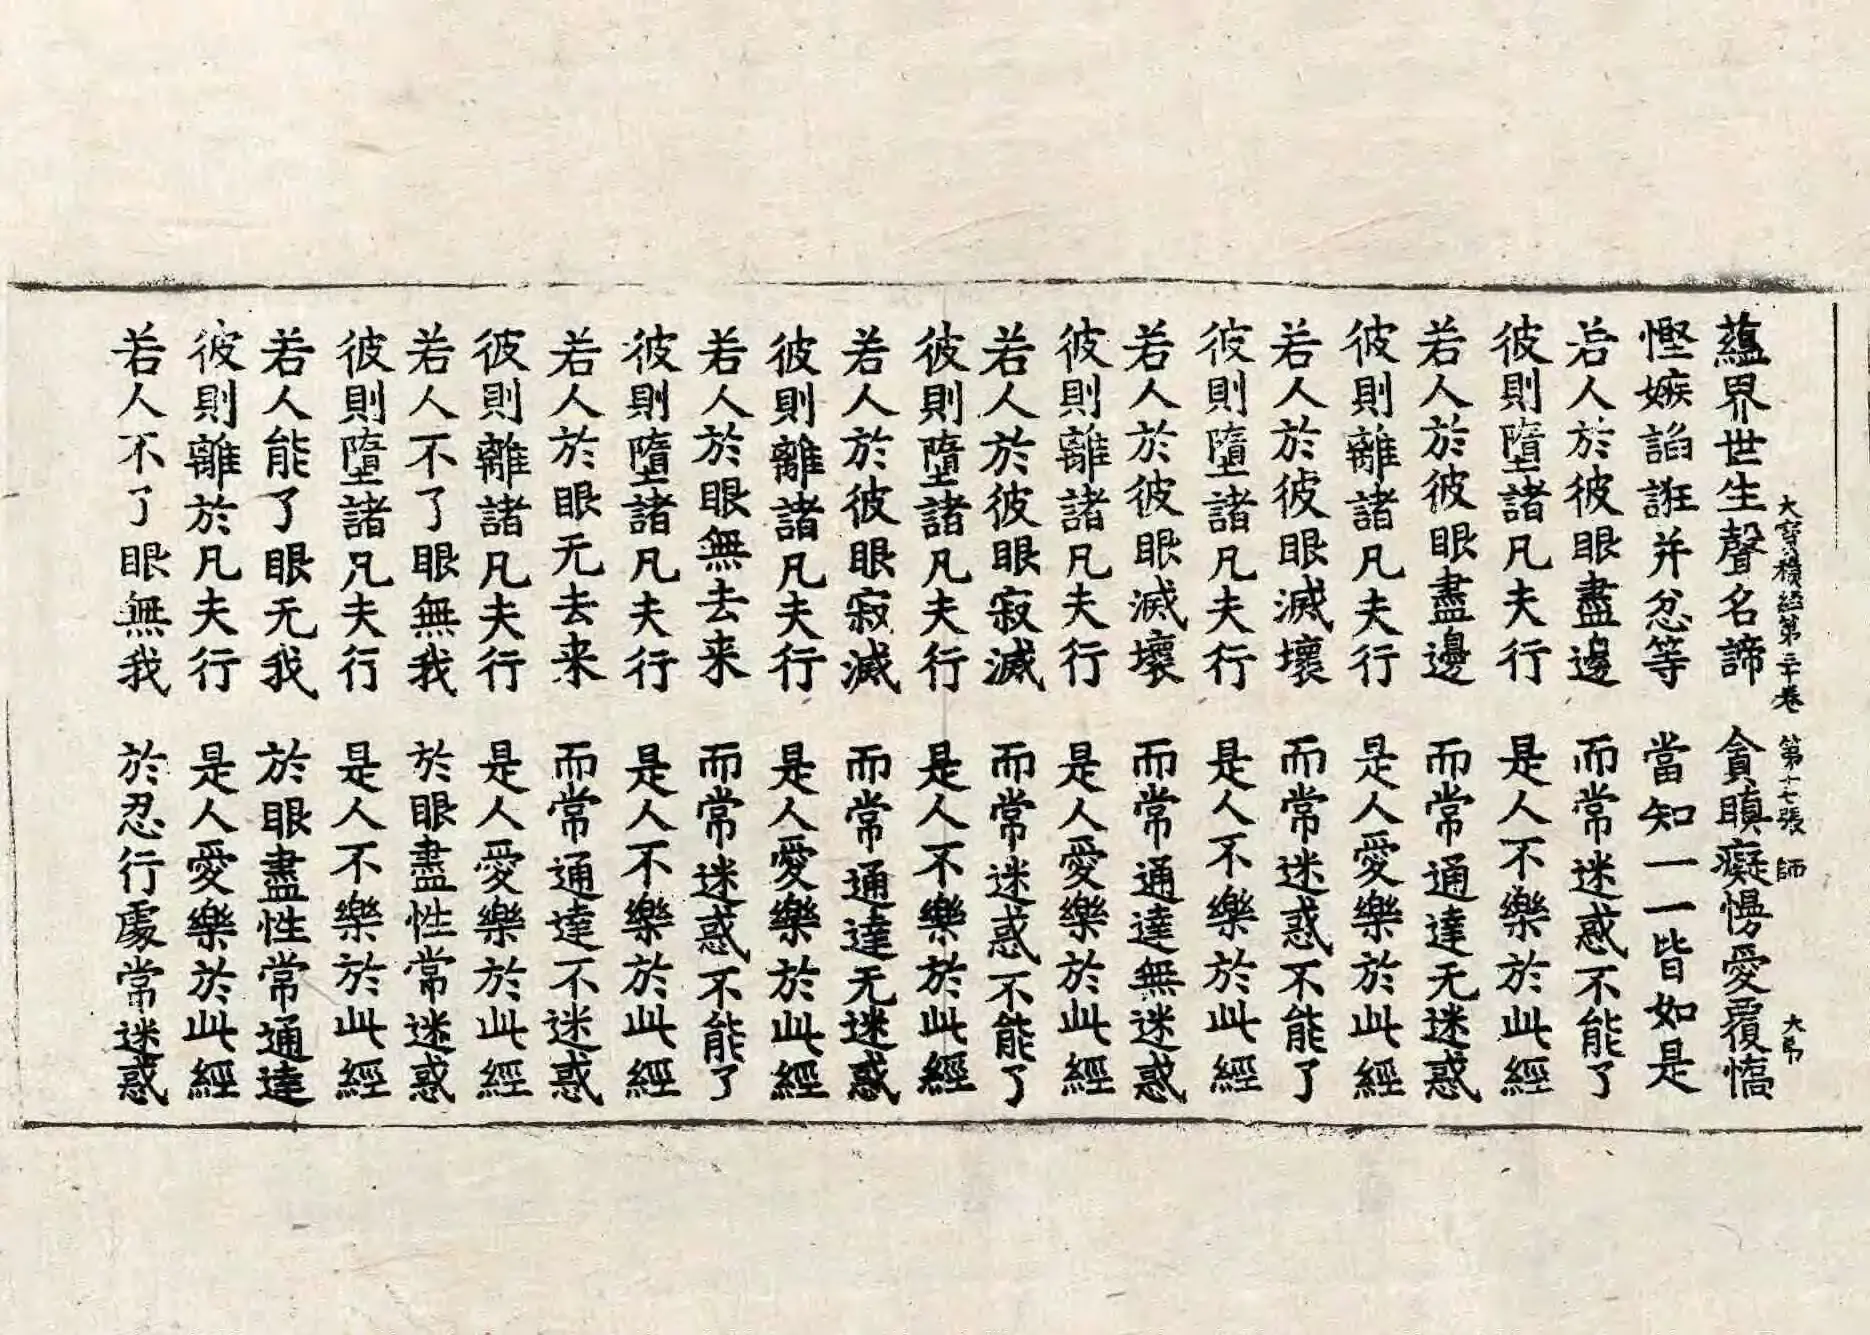 大寳積經第三十卷 第十七張 師 大吊
蘊界世生聲名諦 貪瞋癡慢愛覆憍
慳嫉諂誑并忿等 當知一一皆如是
若人於彼眼盡邊 而常迷惑不能了
彼則墮諸凡夫行 是人不樂於此經
若人於彼眼盡邊 而常通達无迷惑
彼則離諸凡夫行 是人愛樂於此經
若人於彼眼滅壞 而常迷惑不能了
彼則墮諸凡夫行 是人不樂於此經
若人於彼眼滅壞 而常通達無迷惑
彼則離諸凡夫行 是人愛樂於此經
若人於彼眼寂滅 而常迷惑不能了
彼則墮諸凡夫行 是人不樂於此經
若人於彼眼寂滅 而常通達无迷惑
彼則離諸凡夫行 是人愛樂於此經
若人於眼無去来 而常迷惑不能了
彼則墮諸凡夫行 是人不樂於此經
若人於眼无去来 而常通達不迷惑
彼則離諸凡夫行 是人愛樂於此經
若人不了眼無我 於眼盡性常迷惑
彼則墮諸凡夫行 是人不樂於此經
若人能了眼无我 於眼盡性常通達
彼則離於凡夫行 是人愛樂於此經
若人不了眼無我 於忍行處常迷惑